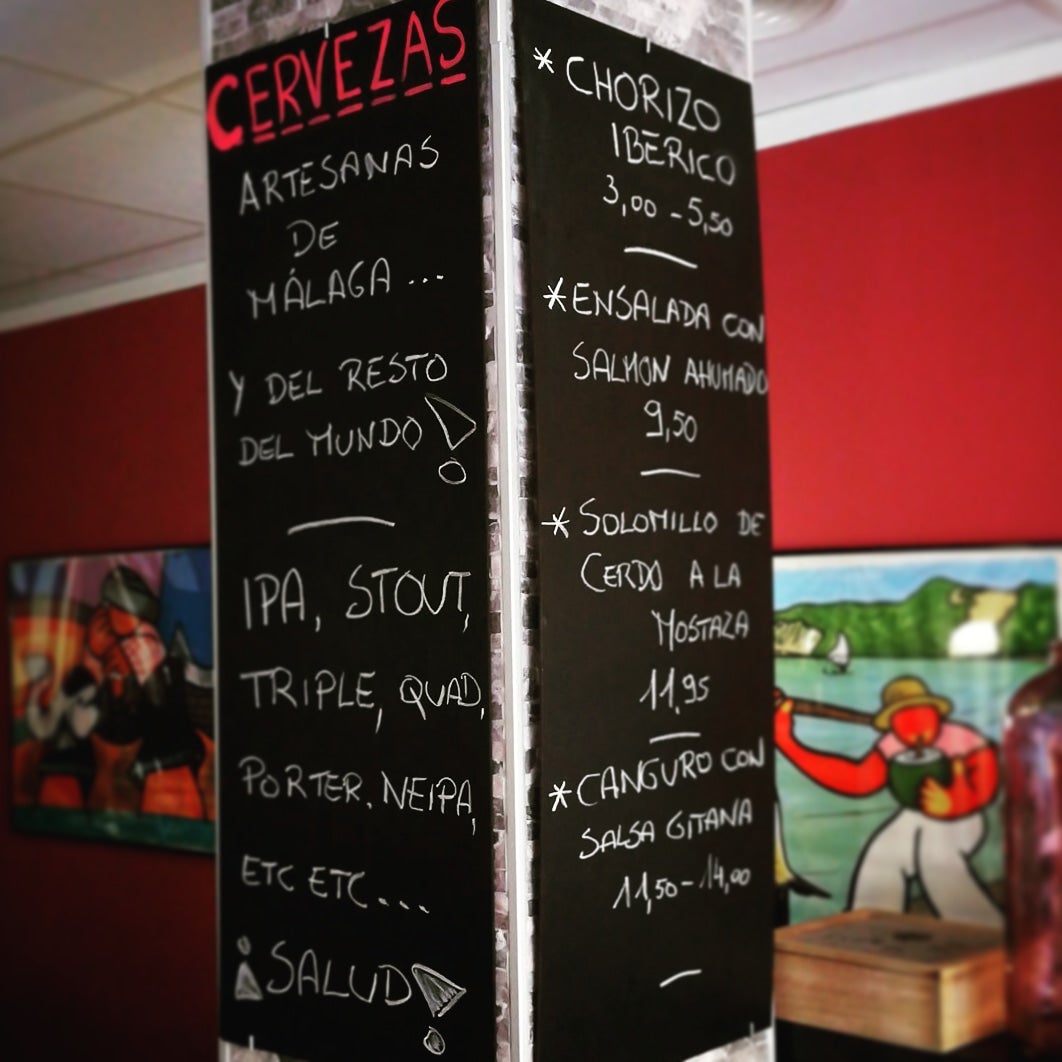 CERVEZAS
ARTESANAS
DE
MÁLAGA...
Y DEL RESTO
DEL MUNDO!
IPA, STOUT,
TRIPLE, QUAD,
PORTER, NEIPA,
ETC ETC...
¡SALUD!
* CHORIZO
IBERICO
3,00 - 5,50
* ENSALADA CON
SALMON AHUMADO
9,50
* SOLOMILLO DE
CERDO A LA
MOSTAZA
11,95
* CANGURO CON
SALSA GITANA
11,50 - 14,00